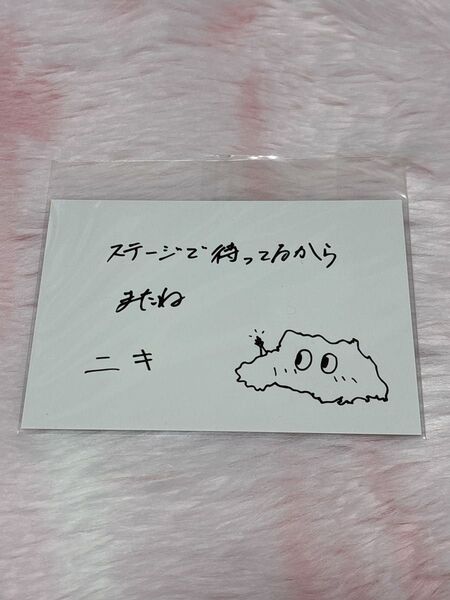 ステージで待ってるから
またね
ニキ